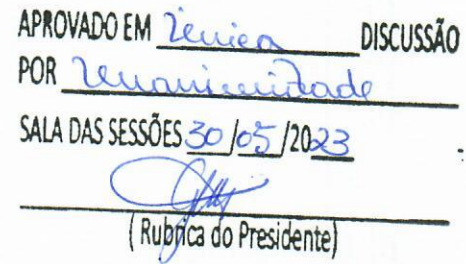 APROVADO EM única DISCUSSÃO
POR unanimidade
SALA DAS SESSÕES 30/05/2023
(Rubrica do Presidente)